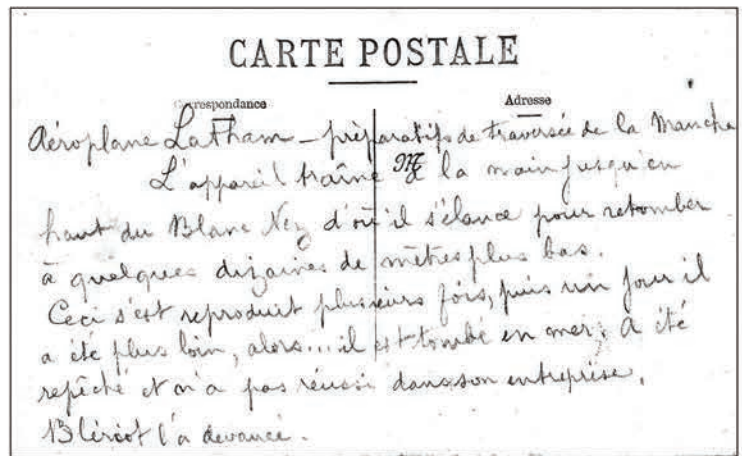 CARTE POSTALE
Correspondance
Adresse
Aéroplane Latham – préparatifs de traversée de la Manche
L'appareil traîné à la main jusqu'en
haut du Blanc Nez d'où il s'élance pour retomber
à quelques dizaines de mètres plus bas.
Ceci s'est reproduit plusieurs fois, puis un jour il
a été plus loin, alors... il est tombé en mer; a été
repêché et n'a pas réussi dans son entreprise,
Blériot l'a devancé.